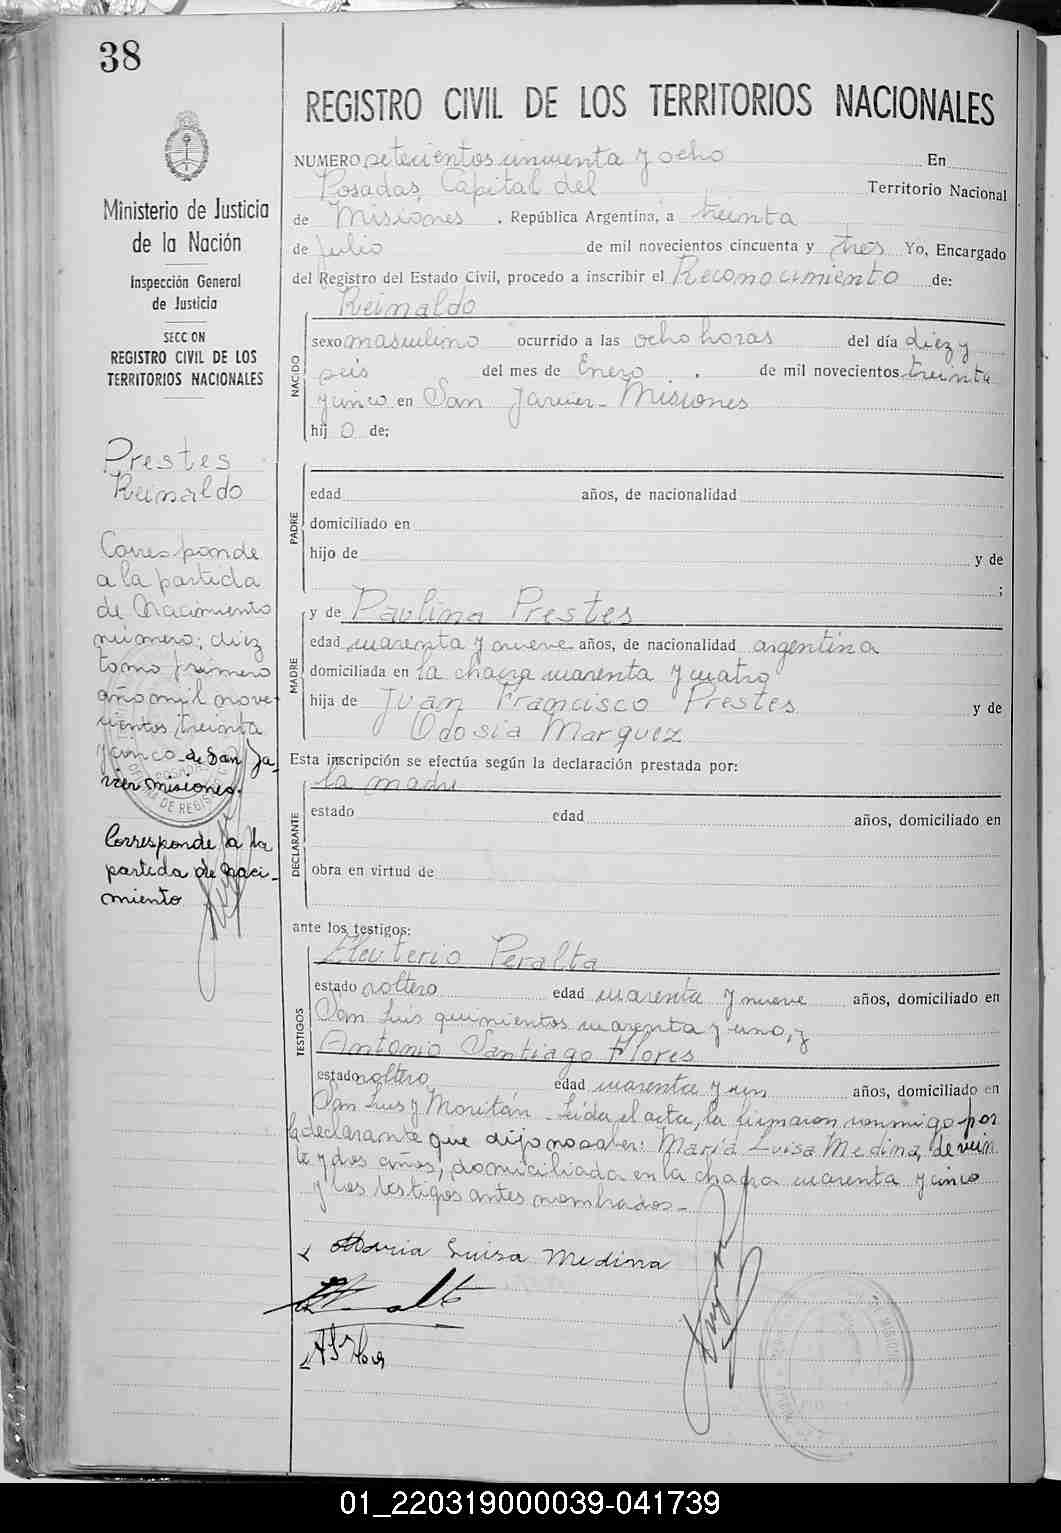 38
Ministerio de Justicia
de la Nación
Inspección General
de Justicia
SECCION
REGISTRO CIVIL DE LOS
TERRITORIOS NACIONALES
Prestes
Reinaldo
Corresponde
a la partida
de Nacimiento
número: diez
tomo primero
año mil nove-
cientos treinta
y cinco de San Ja-
vier misiones.
Corresponde a la
partida de naci-
miento
REGISTRO CIVIL DE LOS TERRITORIOS NACIONALES
NUMERO setecientos cincuenta y ocho En
Posadas, Capital del Territorio Nacional
de Misiones, República Argentina, a treinta
de Julio de mil novecientos cincuenta y tres Yo, Encargado
del Registro del Estado Civil, procedo a inscribir el Reconocimiento de:
Reinaldo
NACIDO
sexo masculino ocurrido a las ocho horas del día diez y
seis del mes de Enero de mil novecientos treinta
y cinco en San Javier - Misiones
hijo de;
PADRE
edad años, de nacionalidad
domiciliado en
hijo de y de
;
MADRE
y de Paulina Prestes
edad cuarenta y nueve años, de nacionalidad argentina
domiciliada en la chacra cuarenta y cuatro
hija de Juan Francisco Prestes y de
Odosia Marquez
Esta inscripción se efectúa según la declaración prestada por:
la madre
DECLARANTE
estado edad años, domiciliado en
obra en virtud de
ante los testigos:
Eleuterio Peralta
TESTIGOS
estado soltero edad cuarenta y nueve años, domiciliado en
San Luis quinientos cuarenta y uno, y
Antonio Santiago Flores
estado soltero edad cuarenta y un años, domiciliado en
San Luis y Moritán - Leída el acta, la firmaron conmigo por
la declarante que dijo no saber: María Luisa Medina, de vein
te y dos años, domiciliada en la chacra cuarenta y cinco
y los testigos antes nombrados-
Maria Luisa Medina
01_220319000039-041739